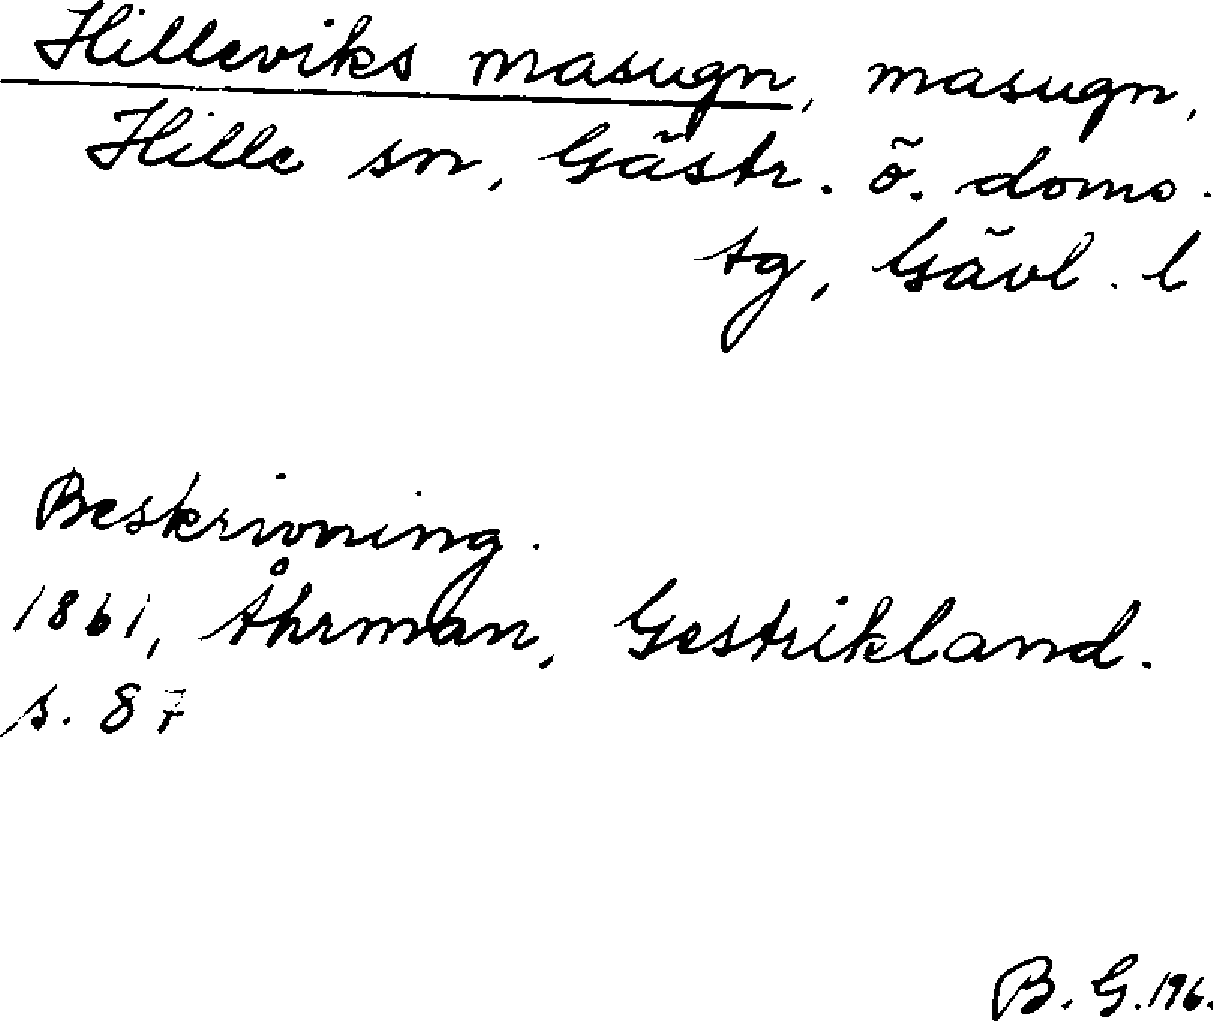 Hilleviks masugn, masugn,
Hille sn, Gästr. ö. doms.
tg, Gävl. l
Beskrivning.
1861, Åhrman, Gestrikland.
s. 87
B. G. 196.